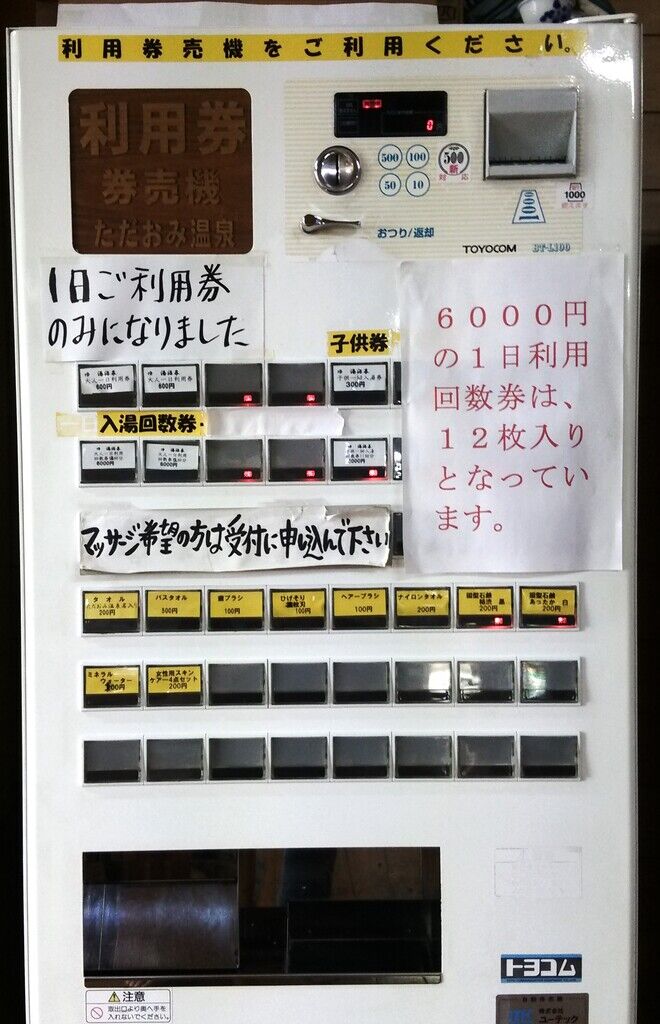 利用券売機をご利用ください。
利用券
券売機
ただおみ温泉
0
500
100
50
10
500
新
対応
1000
1000
使えます
おつり/返却
TOYOCOM
BT-L100
1日ご利用券
のみになりました
6000円
の1日利用
回数券は、
12枚入り
となってい
ます。
子供券
大人一日利用券
600円
大人一日利用券
600円
300円
入湯回数券
6000円
6000円
3000円
マッサージ希望の方は受付に申し込んで下さい
タオル
ただおみ温泉名入り
200円
バスタオル
500円
歯ブラシ
100円
ひげそり
二枚刃
100円
ヘアーブラシ
100円
ナイロンタオル
200円
固型石鹸
柿渋 黒
200円
固型石鹸
あったか 白
200円
ミネラル
ウォーター
女性用スキン
ケアー4点セット
200円
トヨコム
注意
取出口より奥へ手を
入れないでください。
自動券売機
株式会社
ユーテック